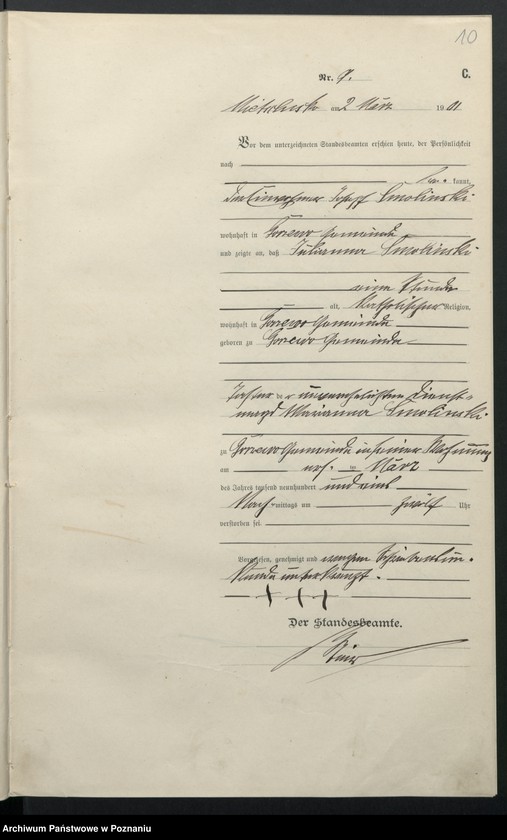 10
Nr. 9. C.
am 2 März 1901
Vor dem unterzeichneten Standesbeamten erschien heute, der Persönlichkeit
nach
kannt,
der Einwohner Josef Smolinski
wohnhaft in Gorzewo Gemeinde
und zeigte an, daß Julianna Smolinski
eine Stunde
alt, katholischer Religion,
wohnhaft in Gorzewo Gemeinde
geboren zu Gorzewo Gemeinde
Tochter der unverehelichten Dienst-
magd Marianna Smolinski
zu Gorzewo Gemeinde in seiner Wohnung
am März
des Jahres tausend neunhundert und eins
Nach mittags um zwölf Uhr
verstorben sei.
Vorgelesen, genehmigt und wegen Schreibens un-
kunde unterkreuzt.
+ + +
Der Standesbeamte.
Archiwum Państwowe w Poznaniu